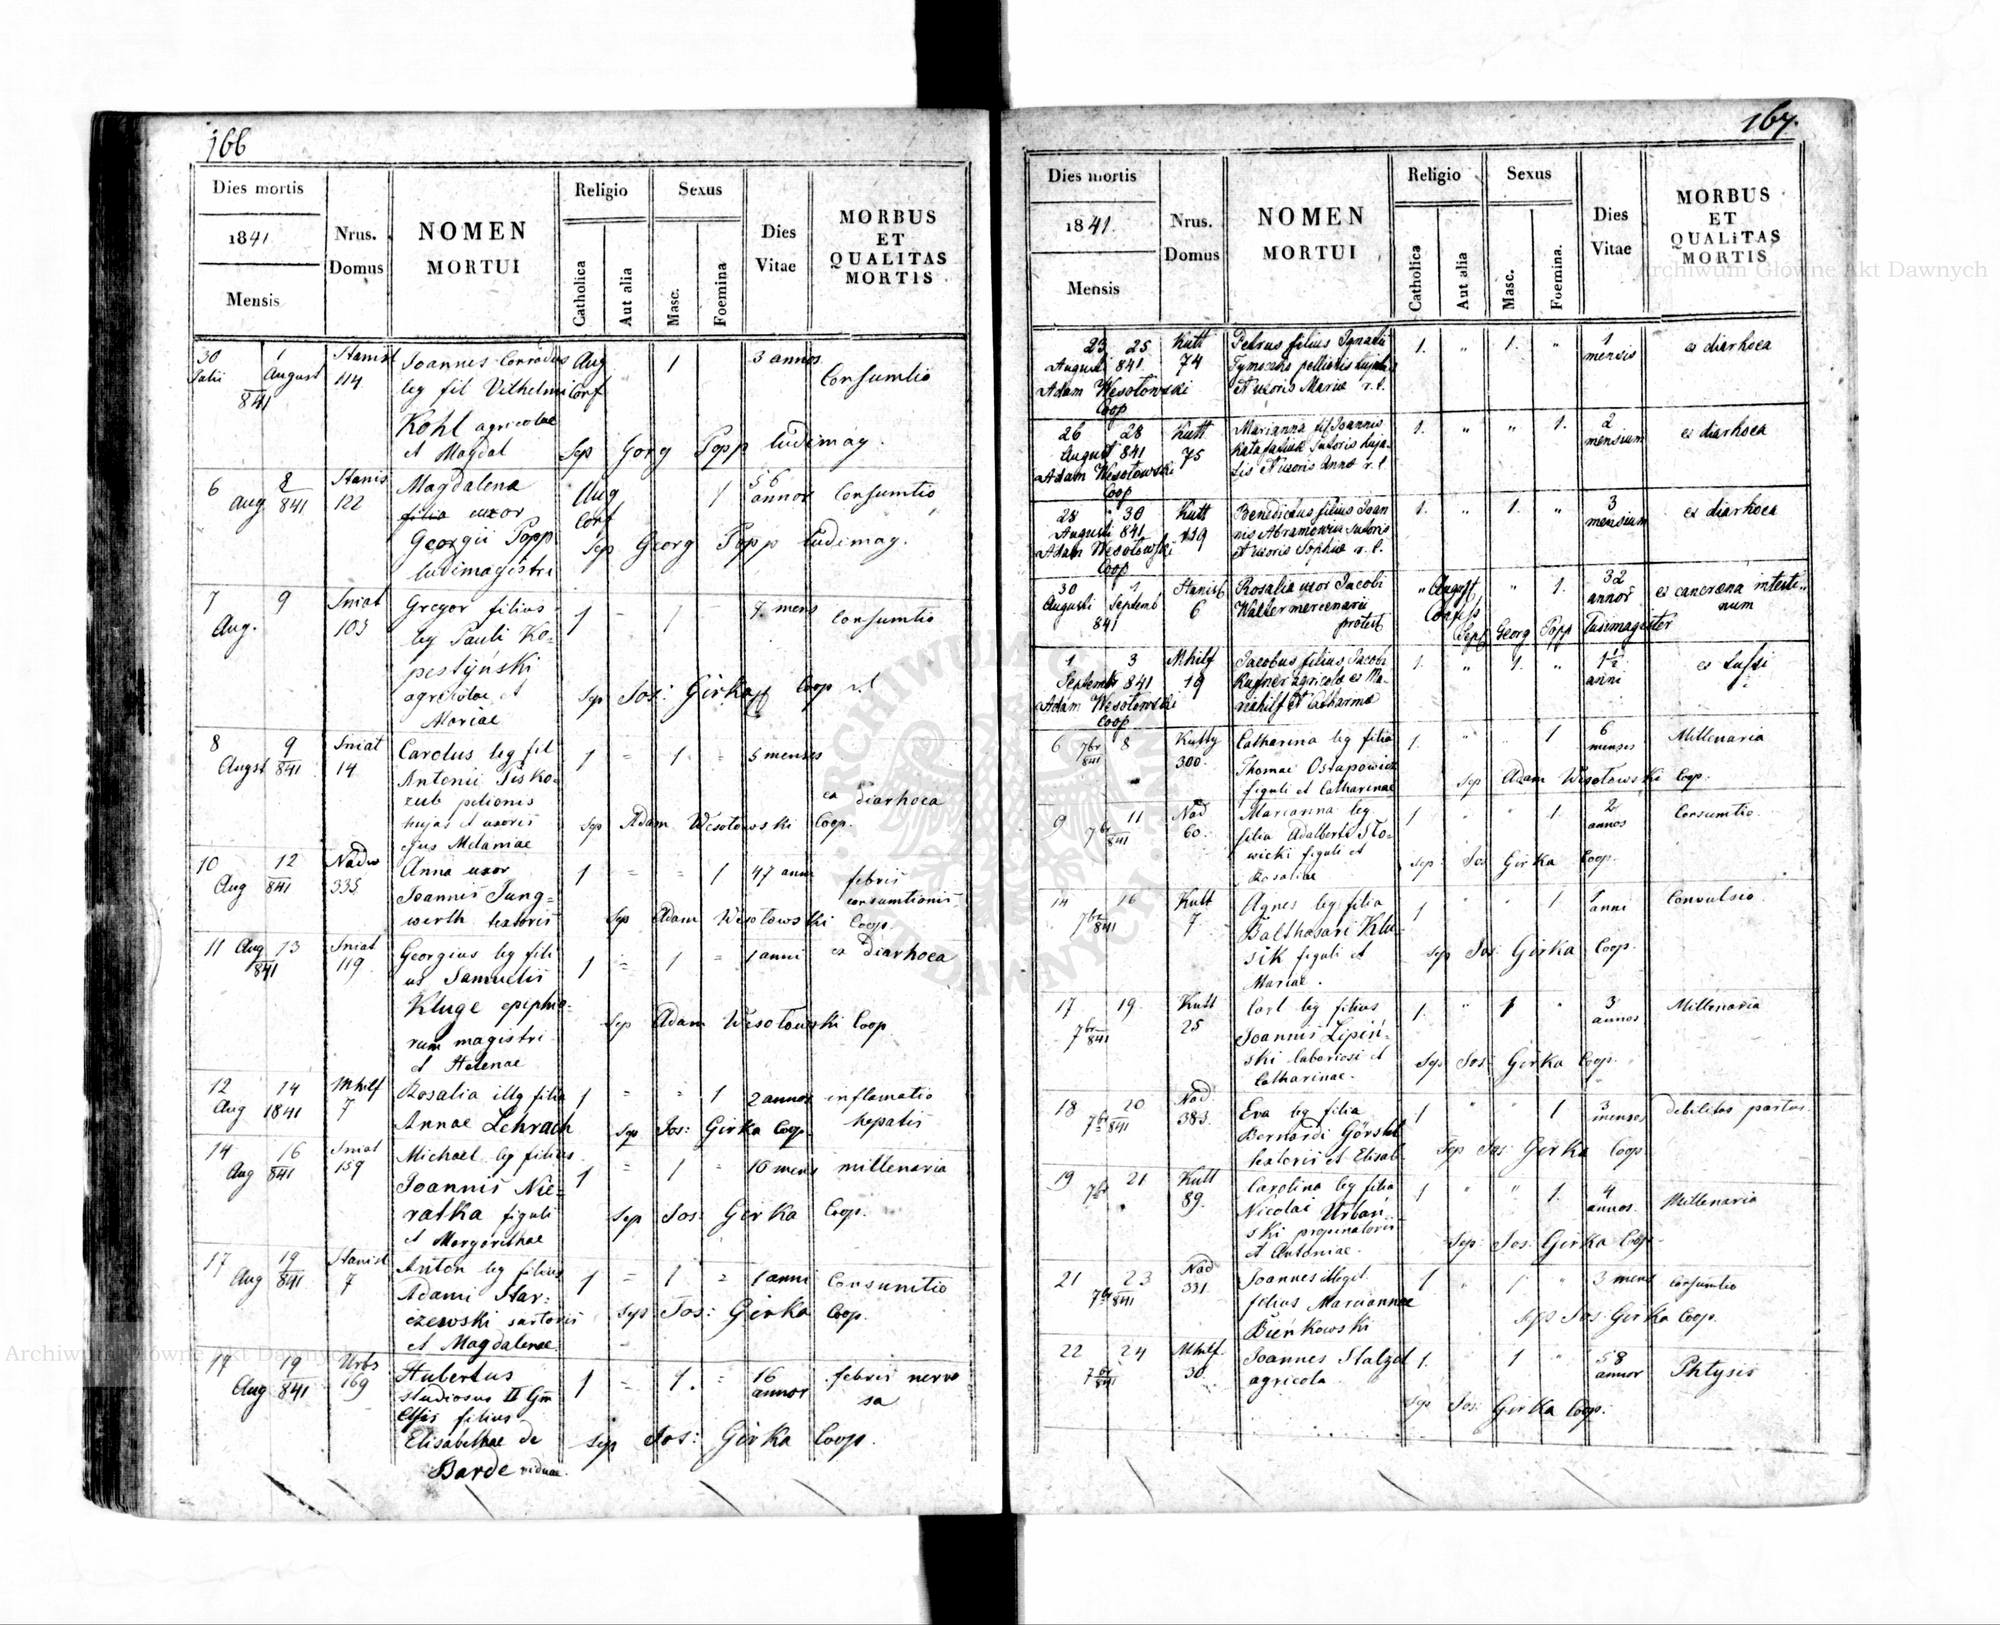 166
Dies mortis
1841
Mensis
Nrus.
Domus
NOMEN
MORTUI
Religio
Catholica
Aut alia
Sexus
Masc.
Foemina
Dies
Vitae
MORBUS
ET
QUALITAS
MORTIS
30 1 Stanisl Joannes Conradus Aug 1 3 annos
Julii August 114 leg fil Vilhelmi Conf Consumtio
841
Kohl agricolae
et Magdal Sep Georg Popp ludimag.
6 8 Stanis Magdalena Aug 1 56
Aug 841 122 filia uxor Conf annor Consumtio
Georgii Popp Sep Georg Popp ludimag.
ludimagistri
7 9 Sniat Gregor filius 1 – 1 – 7 mens Consumtio
Aug. 103 leg Pauli Ko=
pestyński
agricolae et Sep Jos: Girka Coop
Mariae
8 9 Sniat Carolus leg fil 1 = 1 = 5 menses
Augst 841 14 Antonii Pisko=
zub pelionis ex diarhoea
hujas et uxoris Sep Adam Wesołowski Coop.
ejus Melaniae
10 12 Nadw Anna uxor 1 = = 1 47 anni febris
Aug 841 335 Joannis Jung= consumtionis
werth textoris Sep Adam Wesołowski Coop.
11 Aug 13 Sniat Georgius leg fili 1 = 1 = 1 anni ex diarhoea
841 119 us Samuelis
Kluge
rum magistri Sep Adam Wesołowski Coop
et Helenae
12 14 Mhilf Rosalia illg filia 1 = = 1 2 annos inflamatio
Aug 1841 7 Annae Lehrach Sep Jos: Girka Coop. hepatis
14 16 Sniat Michael leg filius 1 = 1 = 10 mens millenaria
Aug 841 159 Joannis Nie=
ratka figuli Sep Jos: Girka Coop.
et Margarethae
17 19 Stanisl Anton leg filius 1 = 1 = 1 anni Consumtio
Aug 841 7 Adami Star=
czewski sartoris Sep Jos: Girka Coop.
et Magdalenae
17 19 Urbs Hubertus 1 = 1. = 16 febris nervo
Aug 841 169 studiosus II Gym annor sa
filius
Elisabethae de Sep Jos: Girka Coop.
Barde viduae.
167.
Dies mortis
1841.
Mensis
Nrus.
Domus
NOMEN
MORTUI
Religio
Catholica
Aut alia
Sexus
Masc.
Foemina.
Dies
Vitae
MORBUS
ET
QUALITAS
MORTIS
23 25 Kutt Petrus filius Ignatii 1. „ 1. „ 1 ex diarhoea
Augusti 841. 74 pellionis mensis
Adam Wesołowski et uxoris Mariae r. l.
Coop
26 28 Kutt Marianna Joannis 1. „ „ 1. 2 ex diarhoea
August 841 75 sutoris huja= mensium
Adam Wesołowski tis et uxoris Annae r. l.
Coop
28 30 Kutt Benedictus filius Joan 1. „ 1. „ 3 ex diarhoea
Augusti 841 119 nis Abramowicz sutoris mensium
Adam Wesołowski et uxoris Sophiae r. l.
Coop
30 1 Stanisl Rosalia uxor Jacobi „ August „ 1. 32 ex cancraena intesti=
Augusti Septemb 6 Walter mercenarii Confess annor num
841 protest Sep Georg Popp Ludimagister
1 3 Mhilf Jacobus filius Jacobi 1. „ 1. „ 1½ ex tussi
Septembr 841 19 Kugner agricolae ex Ma= anni
Adam Wesołowski riahilf et Catharinae
Coop
6 7br 8 Kutty Catharina leg filia 1. „ „ 1 6 Millenaria
841 300. Thomae Ostapowicz menses
figuli et Catharinae Sep Adam Wesołowski Coop.
9 7br 11 Nad Marianna leg 1 „ „ 1. 2 Consumtio.
841 60. filia Adalberti Sło= annos
wicki figuli et Sep: Jos Girka Coop.
Rosaliae
14 7br 16 Kutt Agnes leg filia 1 „ „ 1 1 Convulsio.
841 7 Balthasari Klu= anni
sik figuli et Sep Jos: Girka Coop.
Mariae.
17 19. Kutt Carl leg filius 1. „ 1 „ 3 Millenaria
7br 841 25 Joannis Lipiń= annos
ski laboriosi et Sep Jos: Girka Coop.
Catharinae.
18 20 Nad. Eva leg filia 1 „ „ 1 3 debilitas partus.
7br 841 383. Bernardi menses
textoris et Elisab Sep Jos: Girka Coop
19 7br 21 Kutt Carolina leg filia 1 „ „ 1. 4 Millenaria
89. Nicolai Urbań= annos.
ski propinatoris Sep: Jos: Girka Coop.
et Antoniae.
21 23 Nad Joannes illegit. 1 „ 1 „ 3 mens consumtio
7br 841 331. filius Mariannae
Bieńkowski Sep Jos: Girka Coop.
22 24 Mhilf. Joannes Stalzel 1. „ 1 „ 58 Phtysis
7br 841 30. agricola. annor
Sep Jos: Girka Coop.
Archiwum Główne Akt Dawnych
Archiwum Główne Akt Dawnych